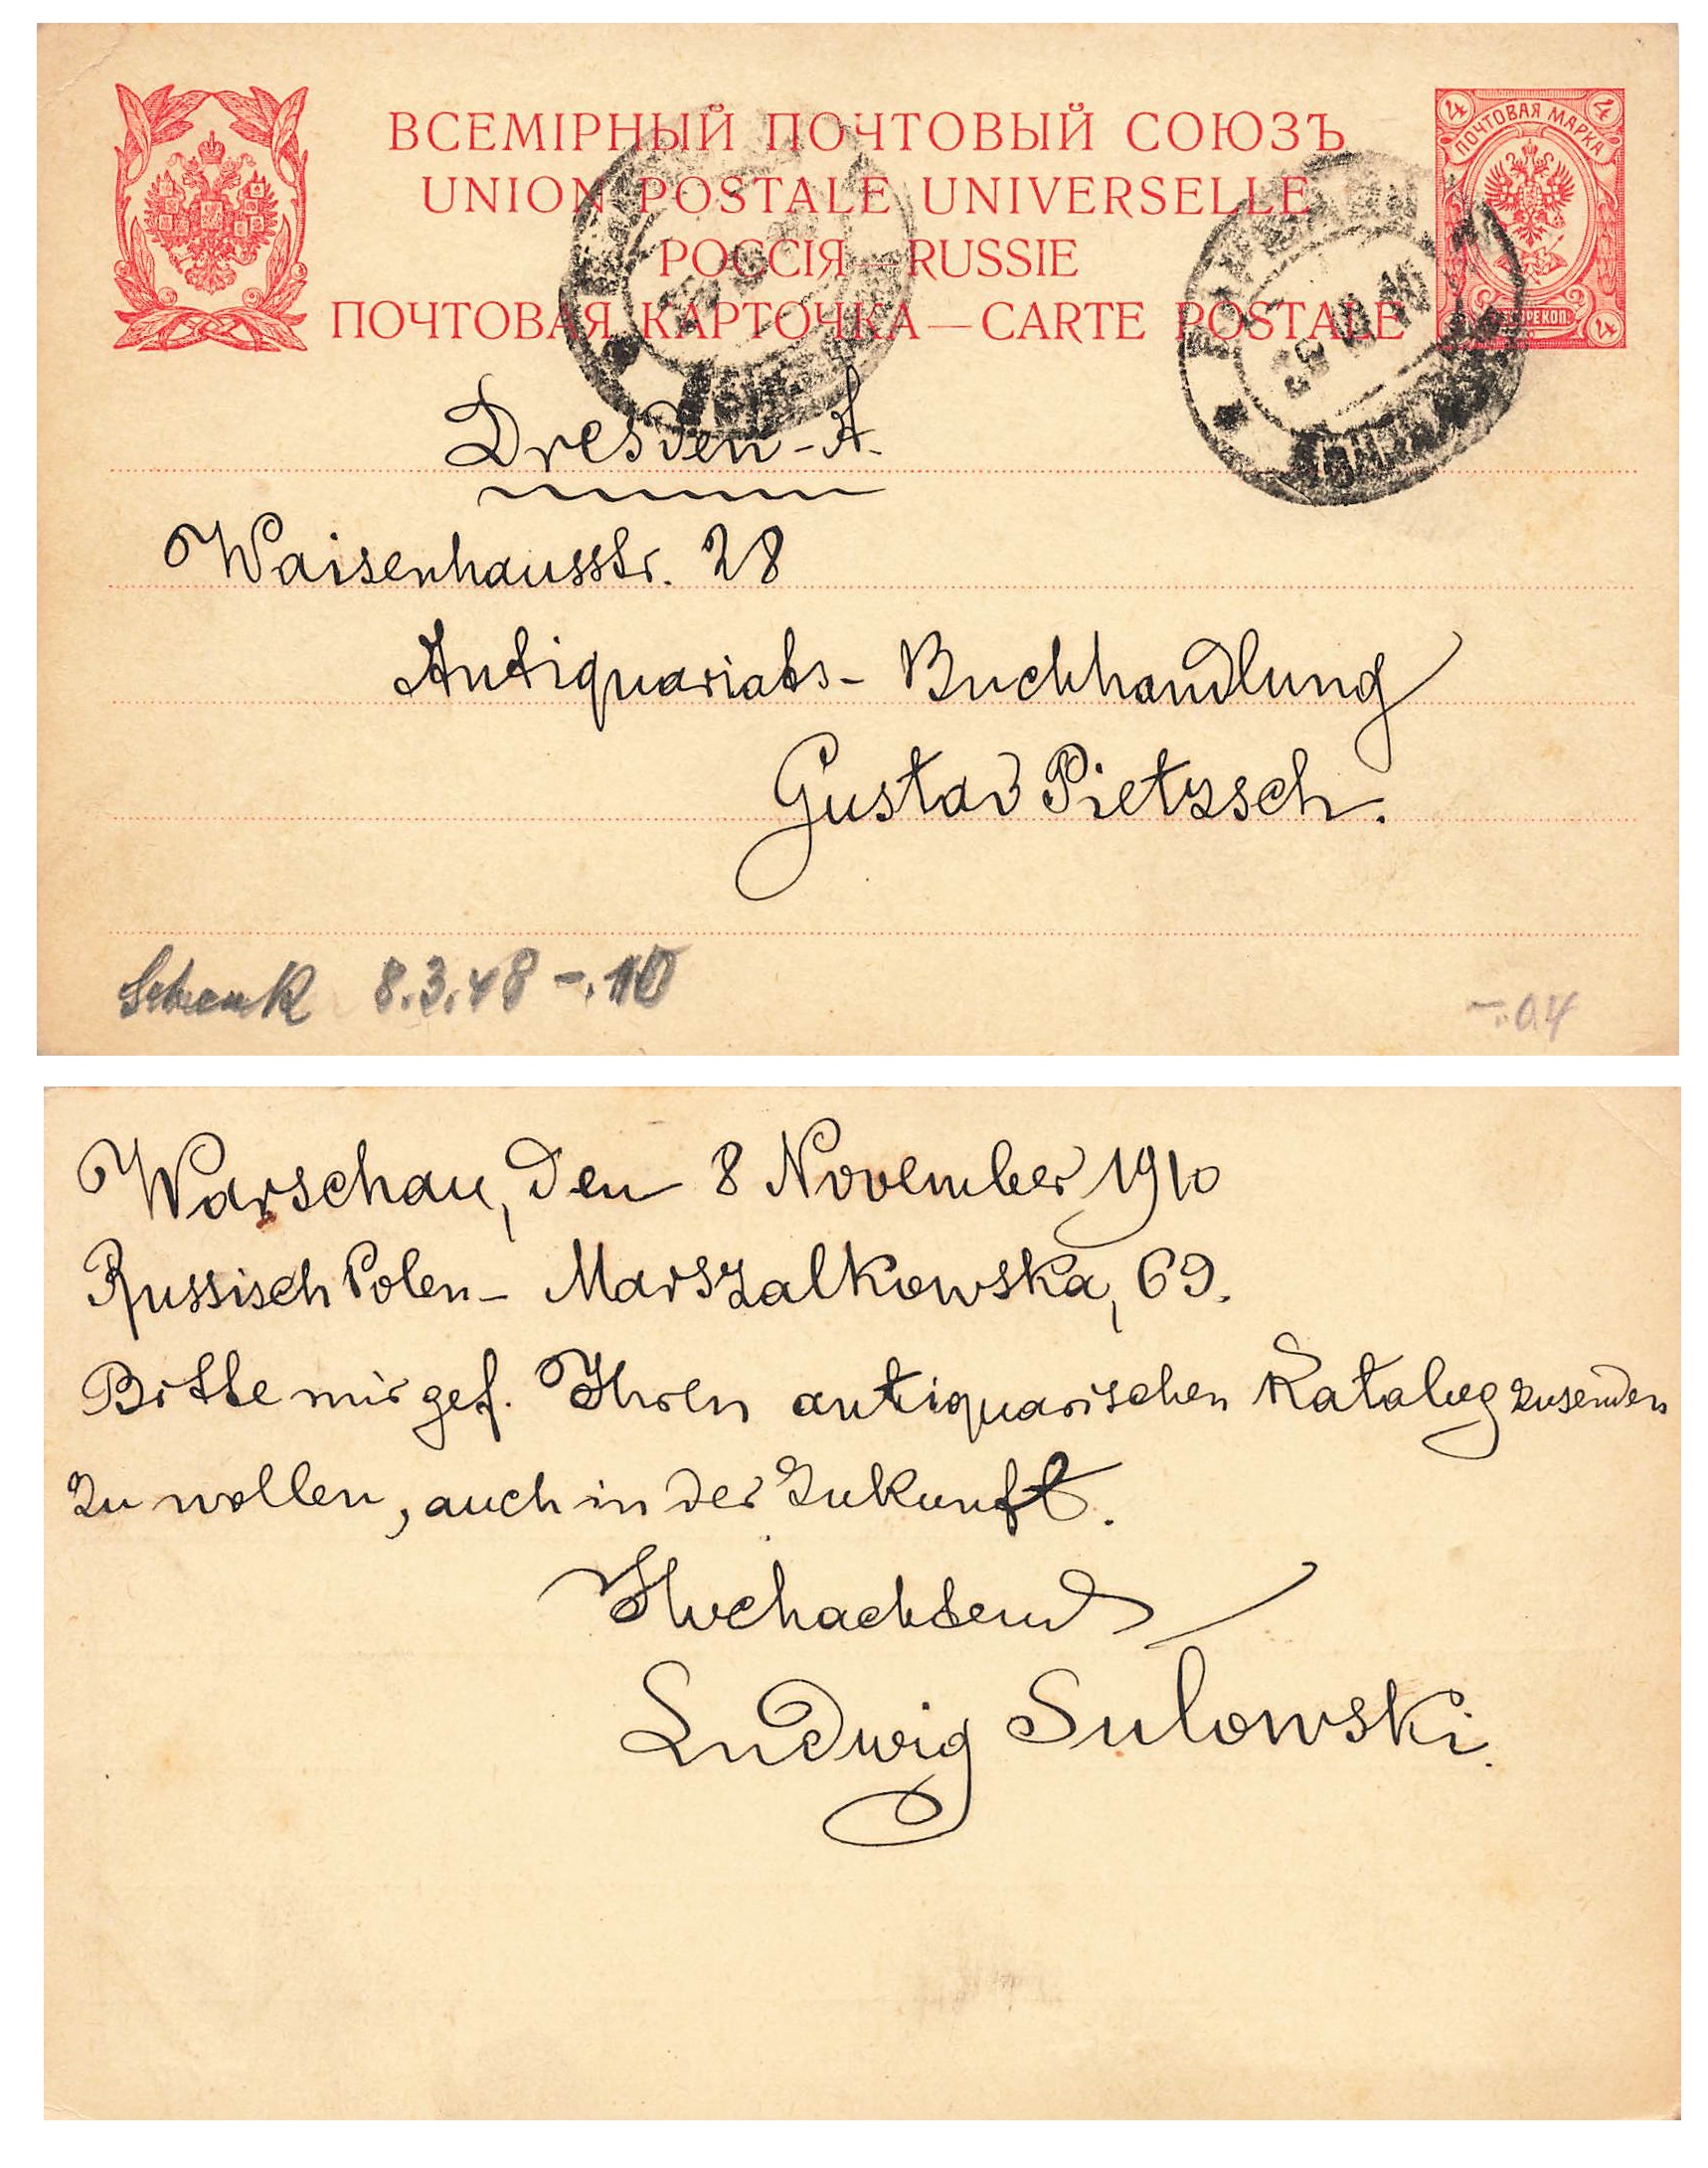 ВСЕМІРНЫЙ ПОЧТОВЫЙ СОЮЗЪ
UNION POSTALE UNIVERSELLE
РОССІЯ—RUSSIE
ПОЧТОВАЯ КАРТОЧКА—CARTE POSTALE
4 4
ПОЧТОВАЯ МАРКА
4
Dresden-A.
Waisenhausstr. 28
Antiquariats-Buchhandlung
Gustav Pietzsch.
8.3.48 -.10
-.04
Warschau, den 8 November 1910
Russisch Polen- Marszalkowska, 69.
Bitte mir gef. Ihren antiquarischen Katalog zusenden
zu wollen, auch in der Zukunft.
Hochachtend
Ludwig Sulowski.